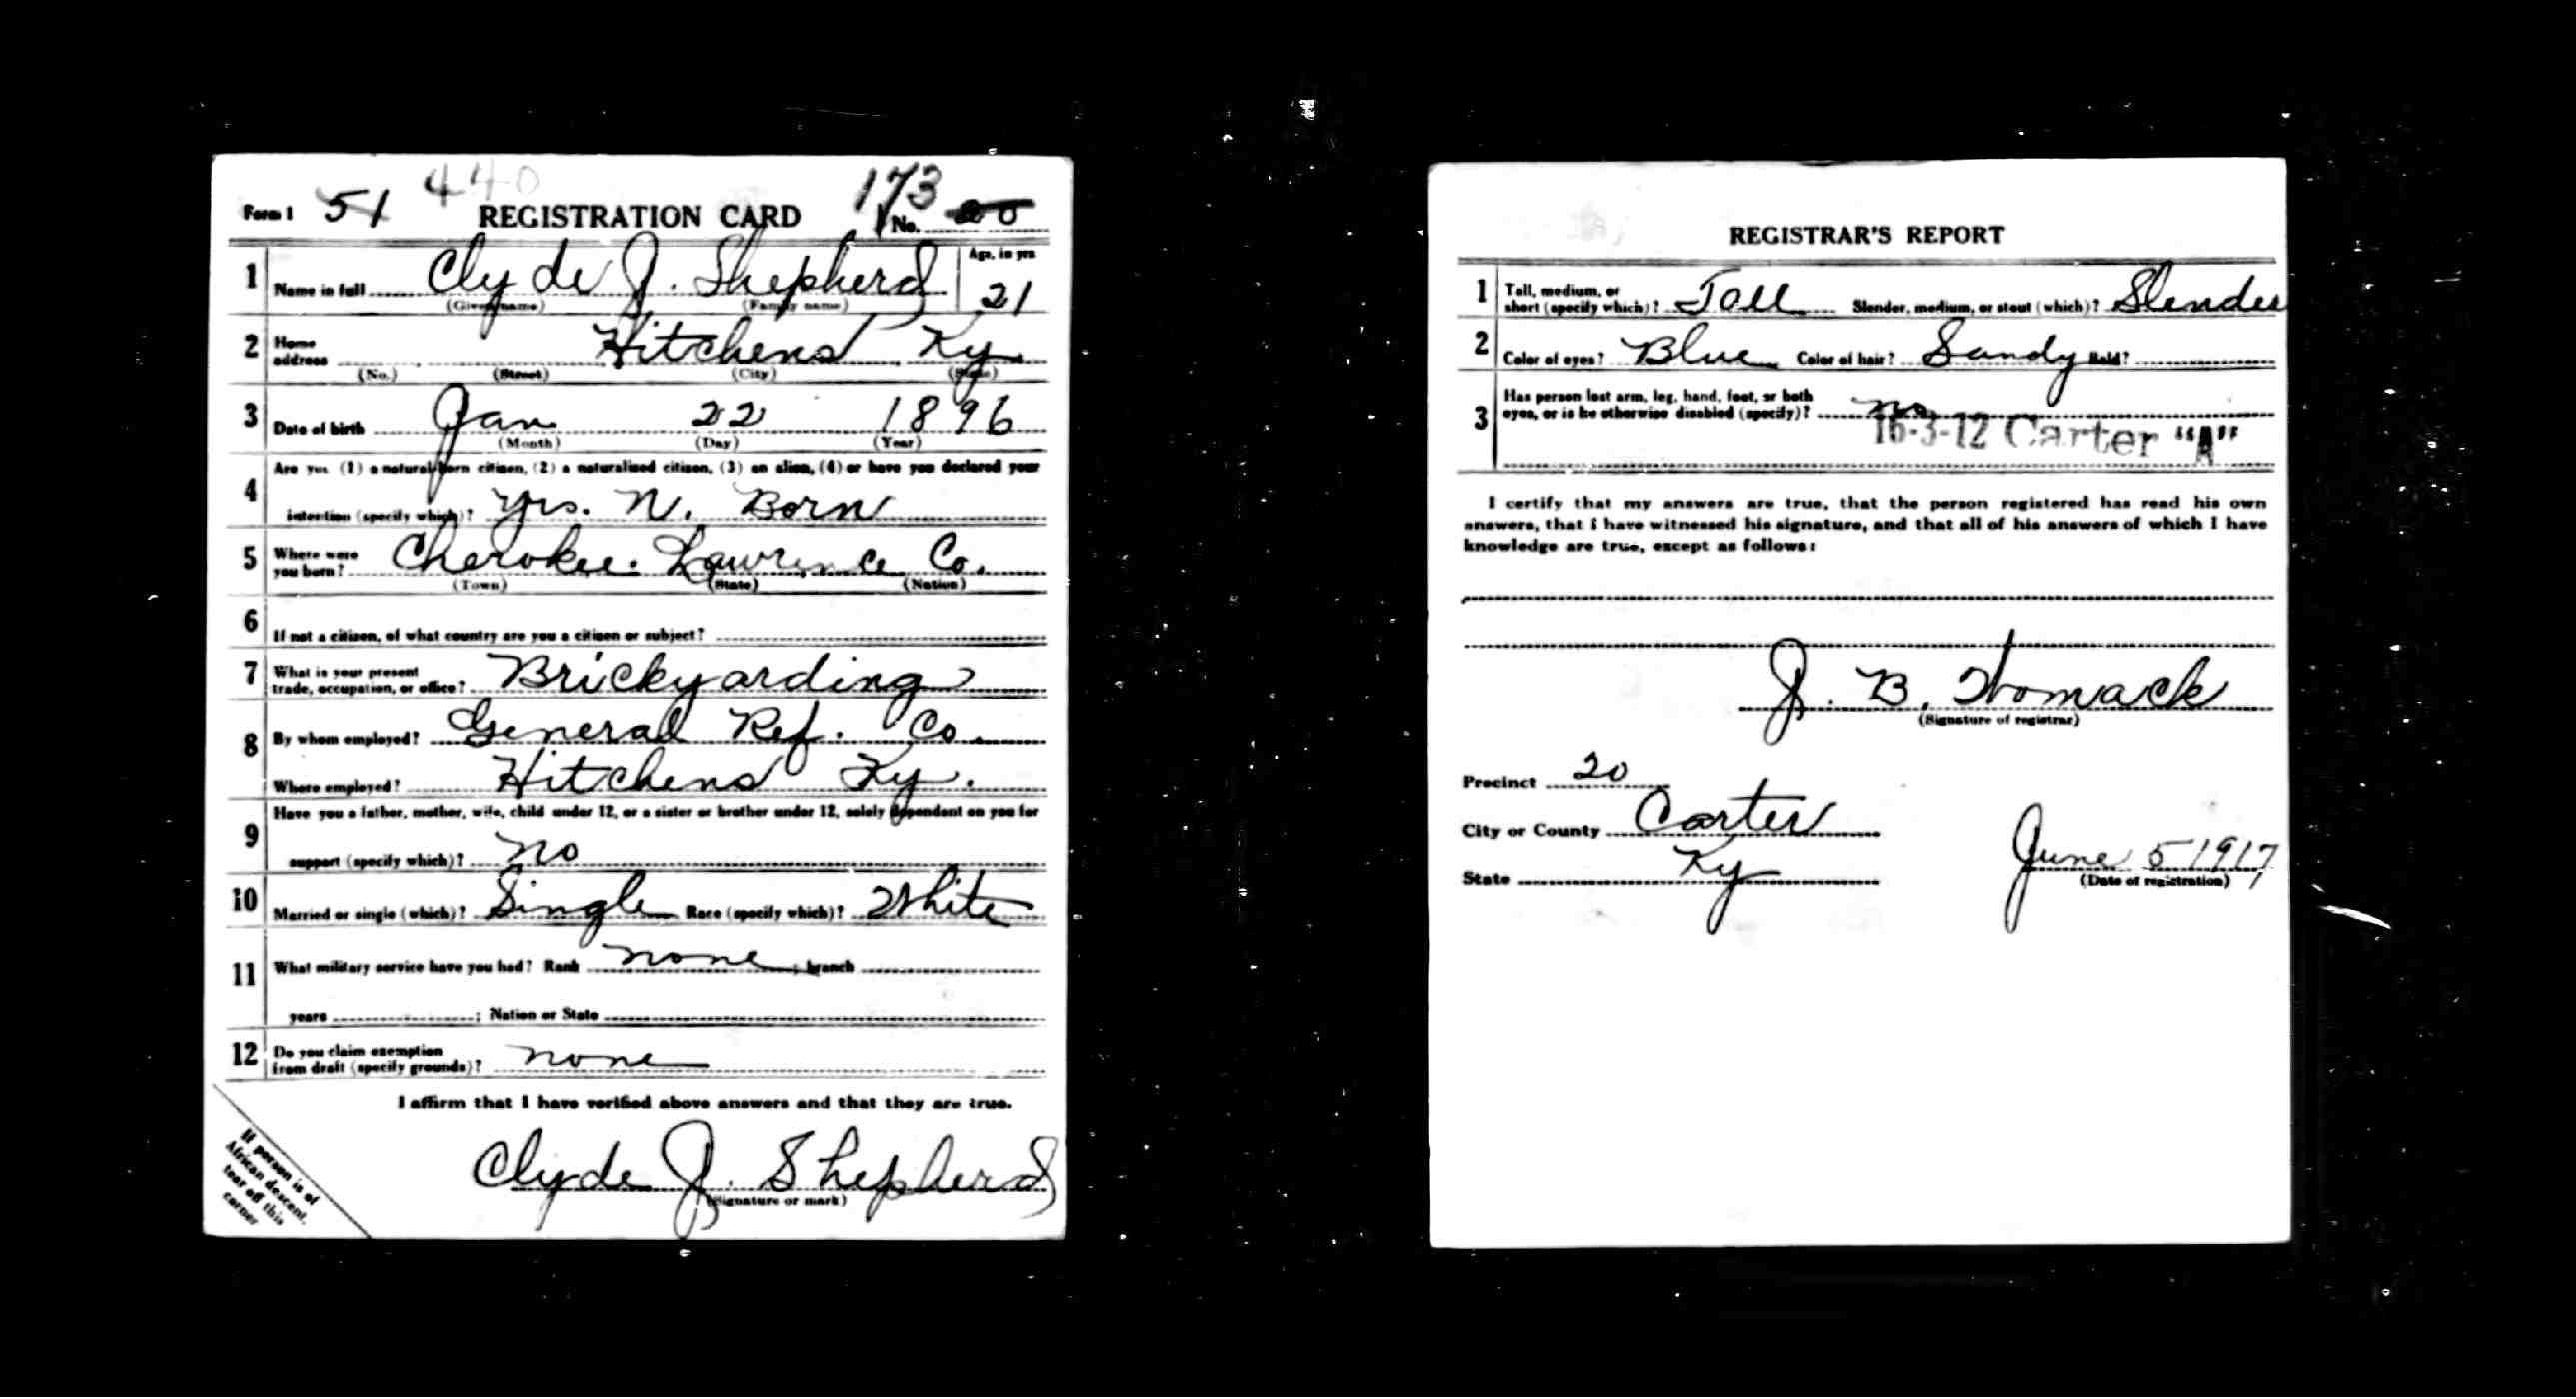 440
173
Form 1 51 REGISTRATION CARD No.
1 Name in full Clyde J. Shepherd Age, in yrs 21
(Given name) (Family name)
2 Home address Hitchens Ky
(No.) (Street) (City) (State)
3 Date of birth Jan 22 1896
(Month) (Day) (Year)
4 Are you (1) a natural-born citizen, (2) a naturalized citizen, (3) an alien, (4) or have you declared your
intention (specify which)? Yes. N. Born
5 Where were you born? Cherokee. Lawrence Co.
(Town) (State) (Nation)
6 If not a citizen, of what country are you a citizen or subject?
7 What is your present trade, occupation, or office? Brickyarding
8 By whom employed? General Ref. Co.
Where employed? Hitchens Ky.
9 Have you a father, mother, wife, child under 12, or a sister or brother under 12, solely dependent on you for
support (specify which)? no
10 Married or single (which)? Single Race (specify which)? White
11 What military service have you had? Rank none ; branch
years ; Nation or State
12 Do you claim exemption from draft (specify grounds)? none
I affirm that I have verified above answers and that they are true.
Clyde J. Shepherd
(Signature or mark)
If person is of
African descent,
tear off this
corner
REGISTRAR'S REPORT
1 Tall, medium, or short (specify which)? Tall Slender, medium, or stout (which)? Slender
2 Color of eyes? Blue Color of hair? Sandy Bald?
3 Has person lost arm, leg, hand, foot, or both
eyes, or is he otherwise disabled (specify)? no
16-3-12 Carter "A"
I certify that my answers are true, that the person registered has read his own
answers, that I have witnessed his signature, and that all of his answers of which I have
knowledge are true, except as follows:
J. B. Womack
(Signature of registrar)
Precinct 20
City or County Carter
State Ky June 5 1917
(Date of registration)